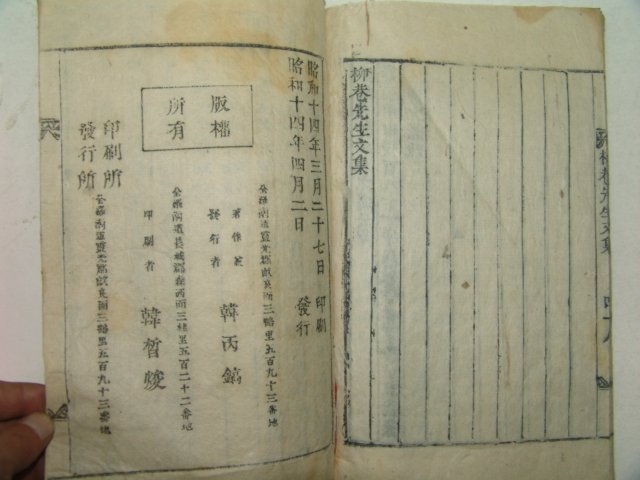 柳巷先生文集
柳巷先生文集
昭和十四年三月二十七日 印刷
昭和十四年四月二日 發行
版權
所有
全羅南道靈光郡畝良面三鶴里五百九十三番地
著作兼
發行者 韓丙鎬
全羅南道長城郡森西面三桂里五百二十二番地
印刷者 韓晳燮
印刷所
發行所
全羅南道靈光郡畝良面三鶴里五百九十三番地